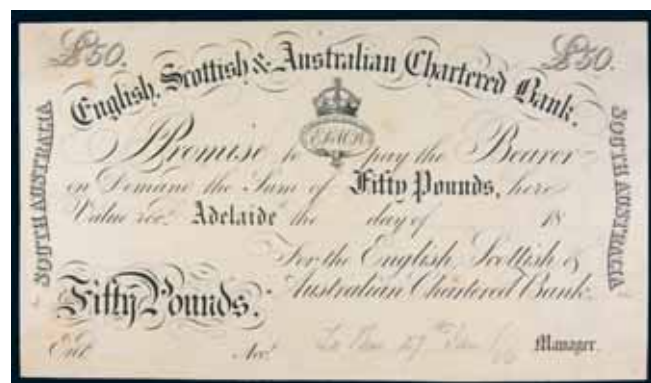 £50. £50.
English, Scottish & Australian Chartered Bank.
SOUTH AUSTRALIA
SOUTH AUSTRALIA
I Promise to pay the Bearer
on Demand the Sum of Fifty Pounds, here
Value recd. Adelaide the day of 18
For the English, Scottish &
Australian Chartered Bank.
Fifty Pounds.
Entd. Acct. Manager.